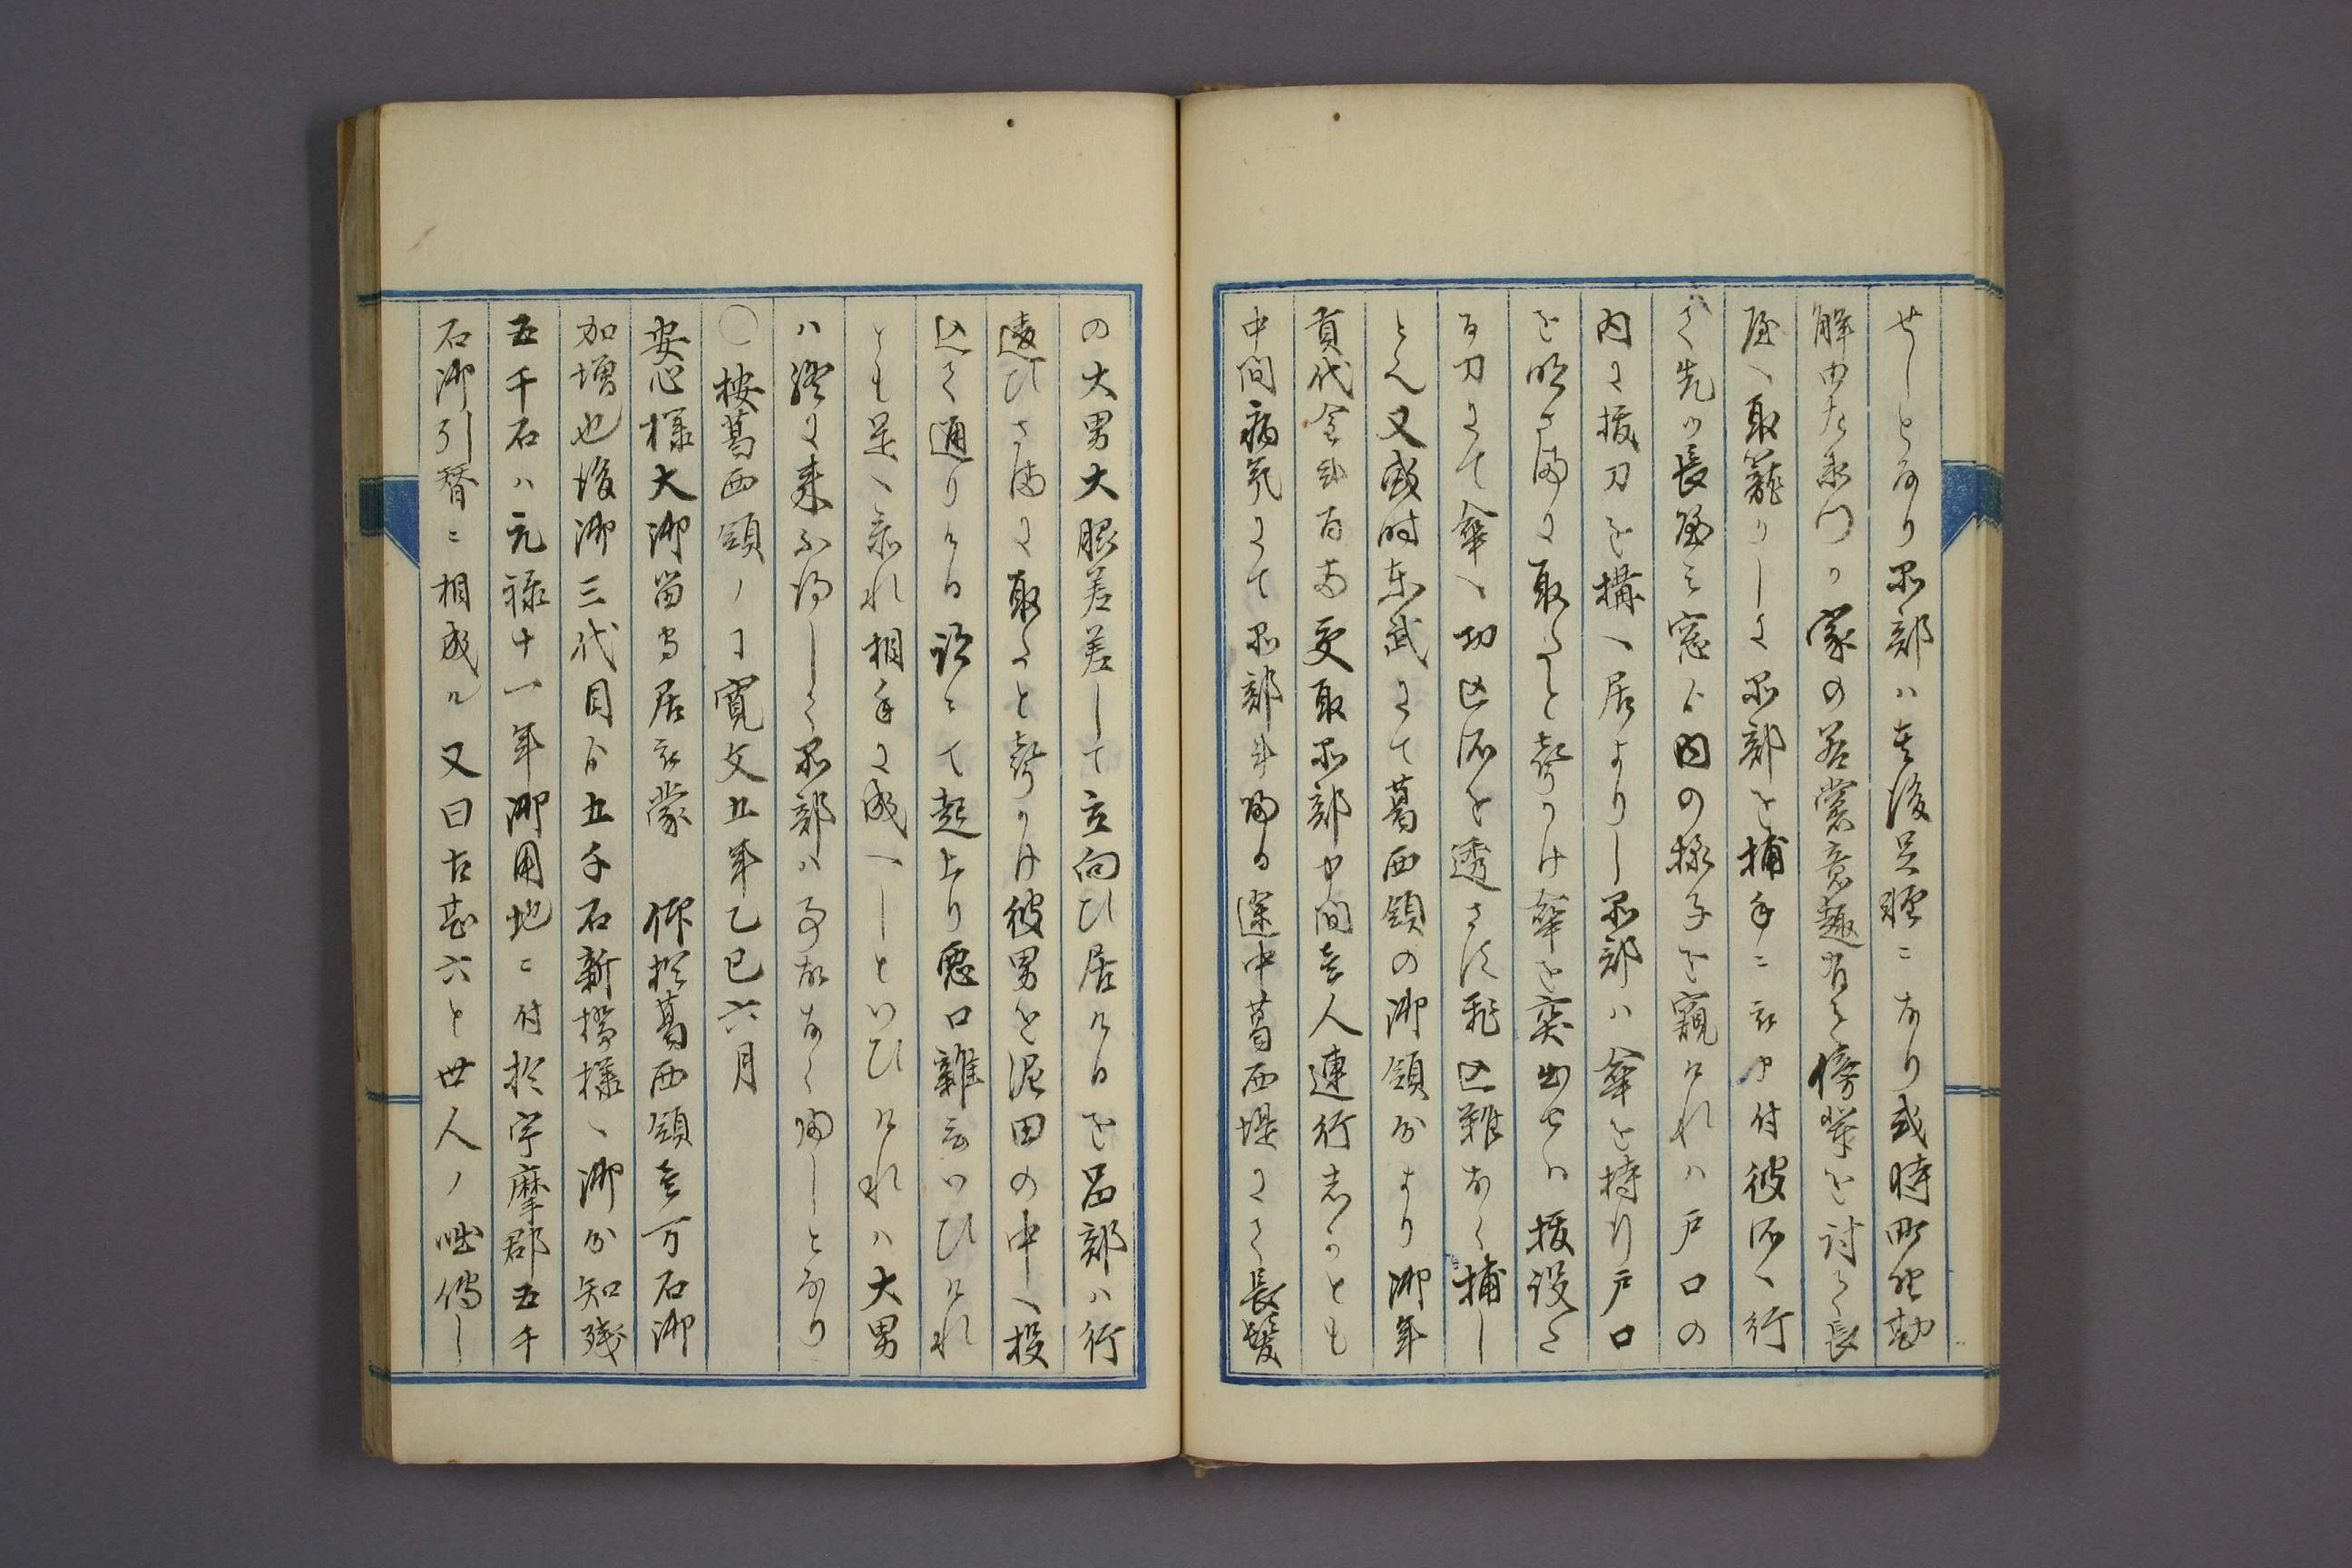 せしとなり不部ハ其後足軽ニなり或時
解由左衛門か家の若党意趣有て傍輩を討て長
屋へ取籠りしに不部を捕手ニ被付彼所へ行
て先ツ長屋の窓ゟ内の様子を窺けれハ戸口の
内に抜刀を構へ居よりし不部ハ傘を持行戸口
を明さまに取たと声かけ傘を突出せハ抜設た
る刀にて傘へ切込所を透さす飛込難なく捕し
とそ又或時東武にて葛西領の御領分より御年
貢代金弐百両受取不部中間壱人連行しかとも
中間病気にて不部斗帰る途中葛西堤にて長髪
の大男大脇差差して立向ひ居けるを不部ハ行
違ひさまに取たと声かけ彼男を泥田の中へ投
込て通りける跡にて起上り悪口雑言いひけれ
とも是へ参れ相手に成へしといひけれハ大男
ハ終に来不得しして不部ハ事故なく帰しとなり
○按葛西領ノ事寛文五年乙巳六月
安心様大御留守居被蒙　仰於葛西領壱万石御
加増也後御三代目ゟ五千石新揚様へ御分知残
五千石ハ元禄十一年御用地ニ付於宇摩郡五千
石御引替ニ相成ル又曰古甚六と世人ノ咄傳し